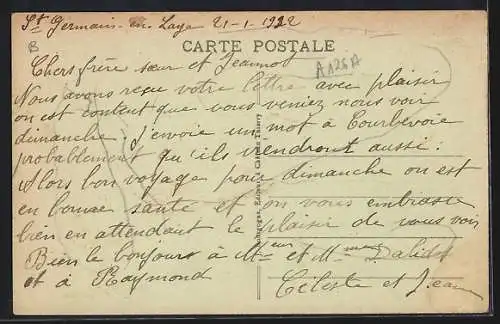 St Germain-en-Laye 21-1-1922
B
CARTE POSTALE
A126A
Chers frère sœur et Jeannot
Nous avons reçu votre lettre avec plaisir
on est content que vous veniez nous voir
dimanche j'envoie un mot à Courbevoie
probablement qu'ils viendront aussi.
Alors bon voyage pour dimanche on est
en bonne santé et on vous embrasse
bien en attendant le plaisir de vous voir
Bien le bonjours à Mr et Mme Dalidot
et à Raymond
Céleste et Jean
Éditeur, Château-Thierry